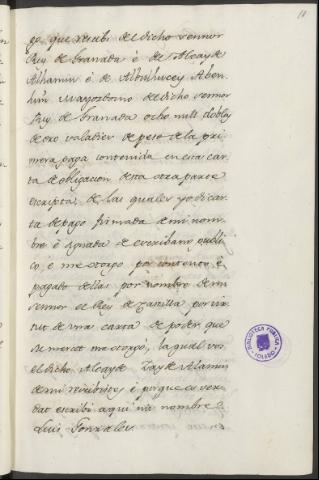 11
go que recibi del dicho sennor
Rey de Granada é de Alcayde
Alhamin é de Abulhucey Aben
Mayordomo del dicho sennor
Rey de Granada ocho mill doblas
de oro valadies de peso de la pri
mera paga contenida en esta car
ta de obligacion desta otra parte
escripta de las quales yo di car
ta de pago firmada de mi nom
bre é signada de escribano publi
co é me otorgo por contento é
pagado dellas por nombre de mi
sennor el Rey de Castilla por vir
tut de una carta de poder que
su merced me otorgó, la qual vos
el dicho Alcayde Zayde Alamin
de mi recibistes é porque es ver
dat escribi aqui mi nombre
Luis Gonzales.
BIBLIOTECA PUBLICA
TOLEDO